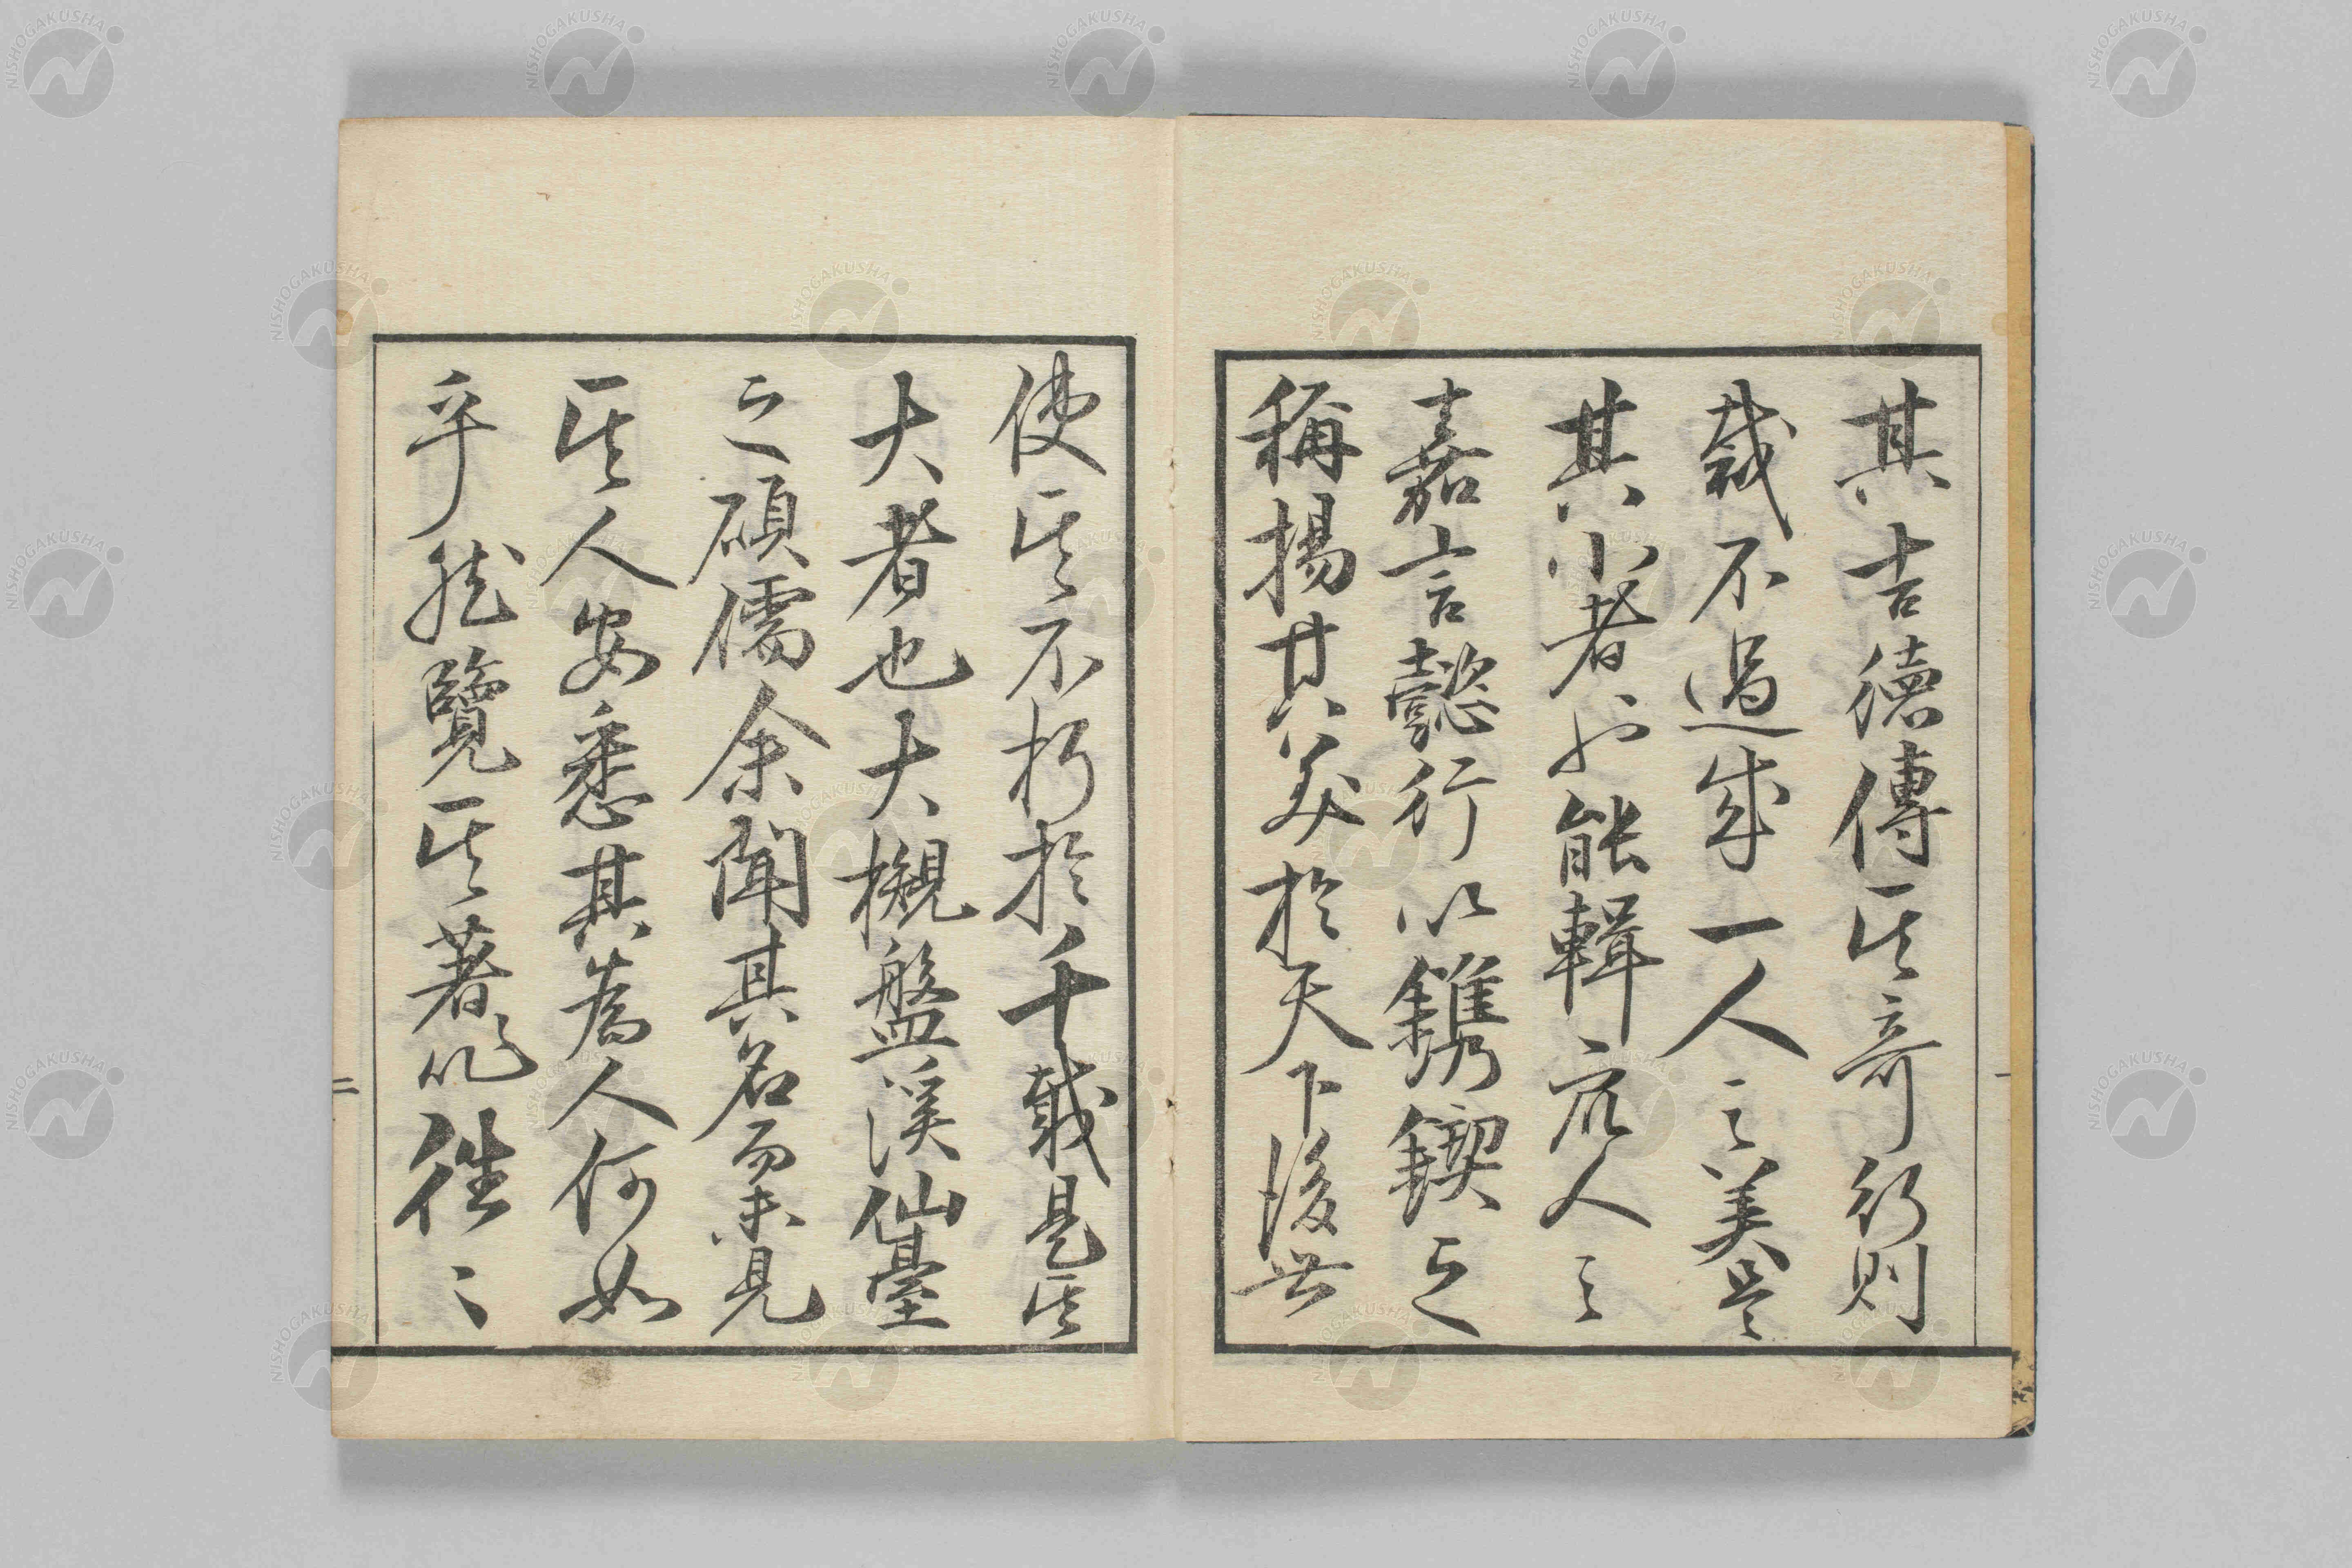 其吉德傳其奇行則
裁不過成一人之美是
其小者也能輯衆人之
嘉言懿行以鐫鍥之
稱揚其美於天下後世
使其不朽於千載是其
大者也大槻盤溪仙臺
之碩儒余聞其名而未見
其人安悉其為人何如
乎然覽其著作往〻
二
NISHOGAKUSHA